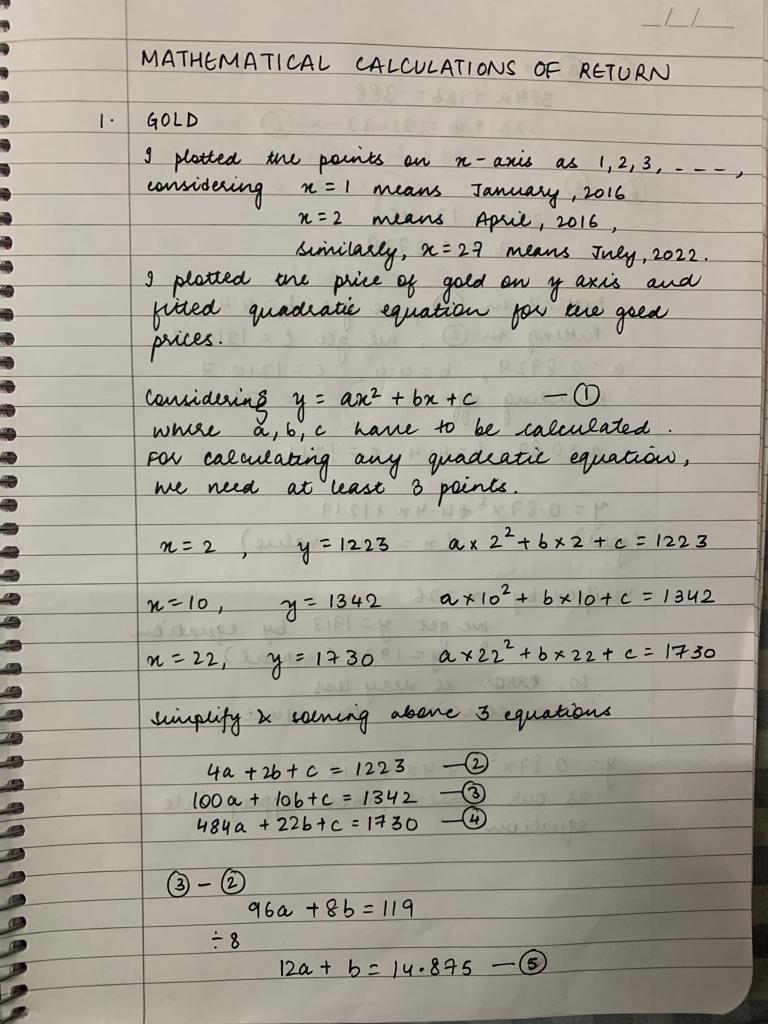 _/_/__
MATHEMATICAL CALCULATIONS OF RETURN
1. GOLD
I plotted the points on x-axis as 1, 2, 3, - - - ,
considering x = 1 means January, 2016
x = 2 means April, 2016,
similarly, x = 27 means July, 2022.
I plotted the price of gold on y axis and
fitted quadratic equation for the gold
prices.
Considering y = ax² + bx + c —①
where a, b, c have to be calculated.
For calculating any quadratic equation,
we need at least 3 points.
x = 2, y = 1223 a x 2² + b x 2 + c = 1223
x = 10, y = 1342 a x 10² + b x 10 + c = 1342
x = 22, y = 1730 a x 22² + b x 22 + c = 1730
simplify & solving above 3 equations
4a + 2b + c = 1223 —②
100a + 10b + c = 1342 —③
484a + 22b + c = 1730 —④
③ - ②
96a + 8b = 119
÷ 8
12a + b = 14.875 —⑤